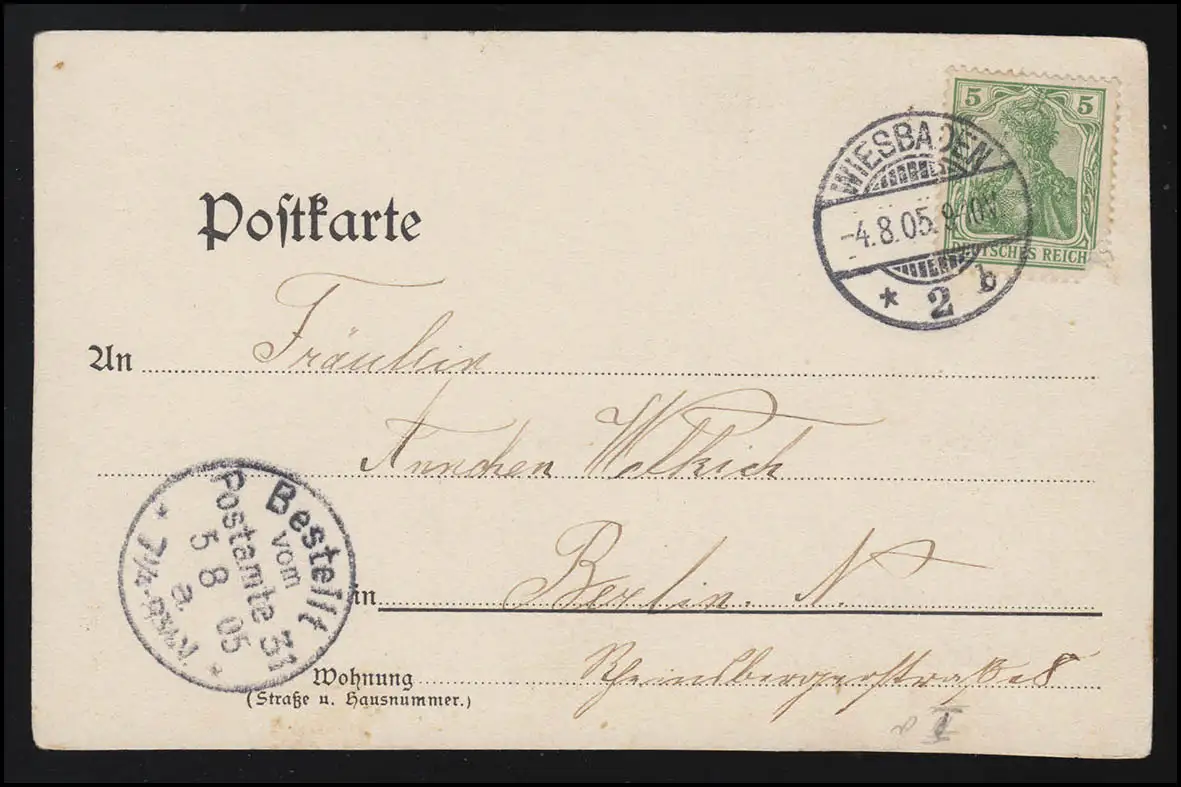 5 5
DEUTSCHES REICH
WIESBADEN
-4.8.05. 8-10V
* 2 b
Postkarte
An Fräulein
Annchen
in Berlin. N.
Wohnung Rheinsbergerstraße 8
(Straße u. Hausnummer.)
Bestellt
vom
Postamte 31
5 8 05
a.
I